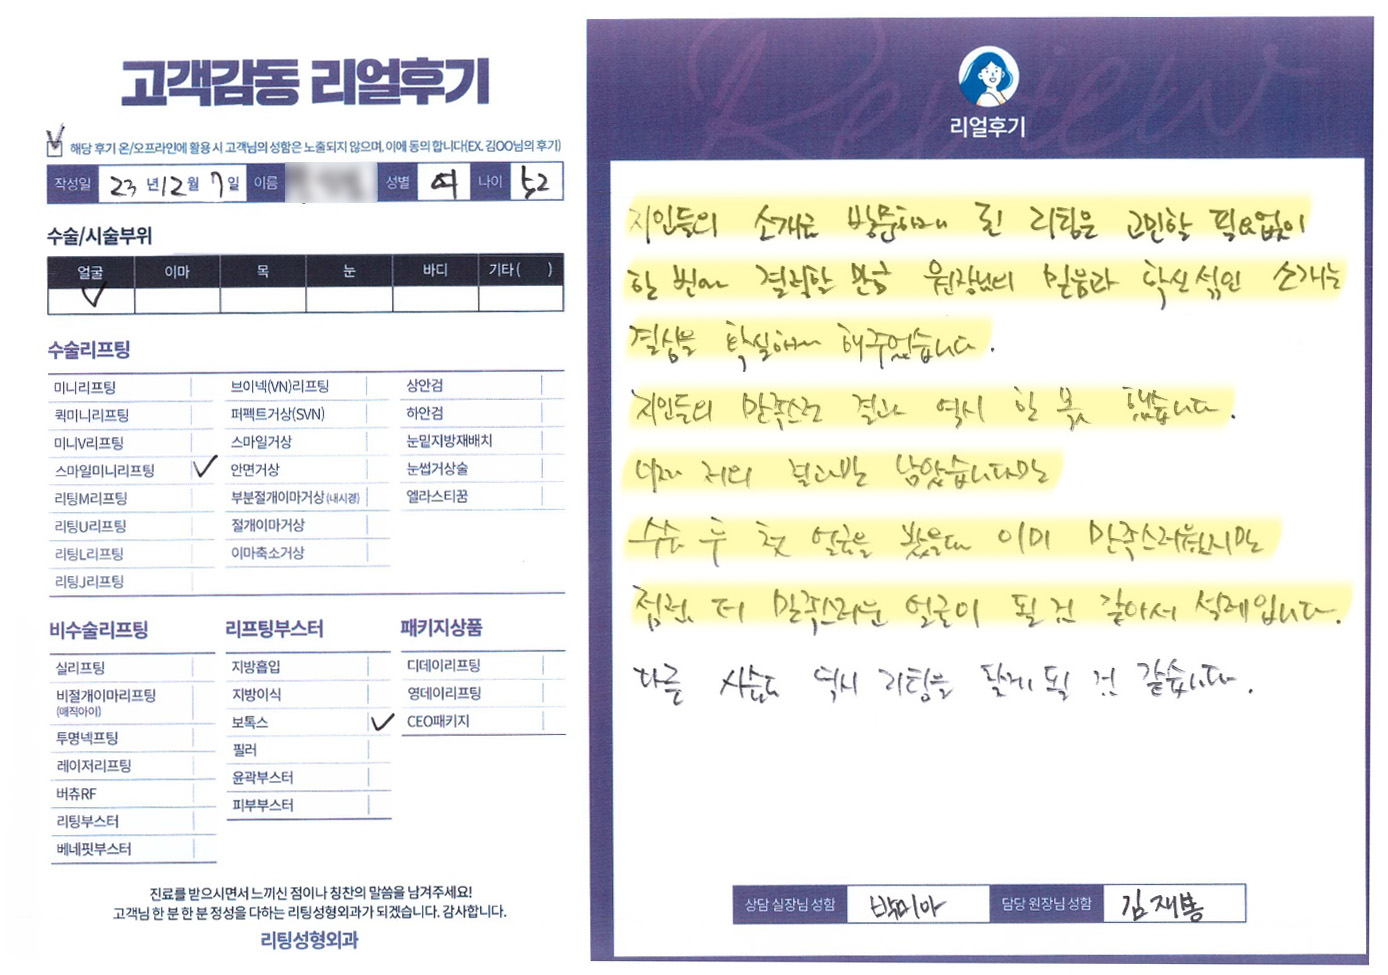 고객감동 리얼후기
해당 후기 온/오프라인에 활용 시 고객님의 성함은 노출되지 않으며, 이에 동의 합니다(EX. 김OO님의 후기)
작성일 23 년 12 월 7 일 이름 성별 여 나이 52
수술/시술부위
얼굴 이마 목 눈 바디 기타 ( )
수술리프팅
미니리프팅
퀵미니리프팅
미니V리프팅
스마일미니리프팅
리팅M리프팅
리팅U리프팅
리팅L리프팅
리팅J리프팅
브이넥(VN)리프팅
퍼펙트거상(SVN)
스마일거상
안면거상
부분절개이마거상 (내시경)
절개이마거상
이마축소거상
상안검
하안검
눈밑지방재배치
눈썹거상술
엘라스티꿈
비수술리프팅
실리프팅
비절개이마리프팅
(매직아이)
투명넥프팅
레이저리프팅
버츄RF
리팅부스터
베네핏부스터
리프팅부스터
지방흡입
지방이식
보톡스
필러
윤곽부스터
피부부스터
패키지상품
디데이리프팅
영데이리프팅
CEO패키지
진료를 받으시면서 느끼신 점이나 칭찬의 말씀을 남겨주세요!
고객님 한 분 한 분 정성을 다하는 리팅성형외과가 되겠습니다. 감사합니다.
리팅성형외과
Review
리얼후기
지인들의 소개로 방문하게 된 리팅은 고민할 필요없이
한 번에 결정할 만큼 원장님의 믿음과 확신 섞인 소개는
결심을 확실하게 해주었습니다.
지인들의 만족스런 결과 역시 한 몫 했습니다.
이제 저의 결과만 남았습니다만
수술 후 첫 얼굴을 봤을때 이미 만족스러웠지만
점점 더 만족스러운 얼굴이 될 것 같아서 설레입니다.
다른 시술도 역시 리팅을 찾게 될 것 같습니다.
상담 실장님 성함 박미아 담당 원장님 성함 김재봉